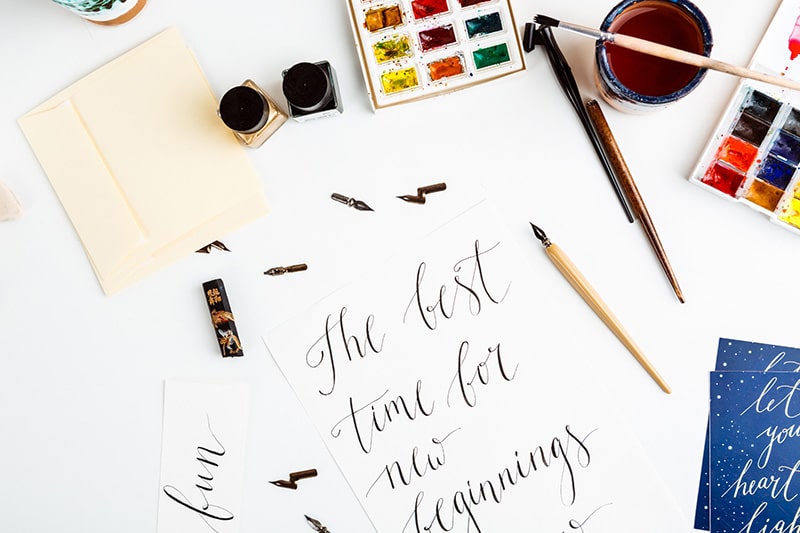 The best
time for
new
beginnings
fun
let
you
heart
light